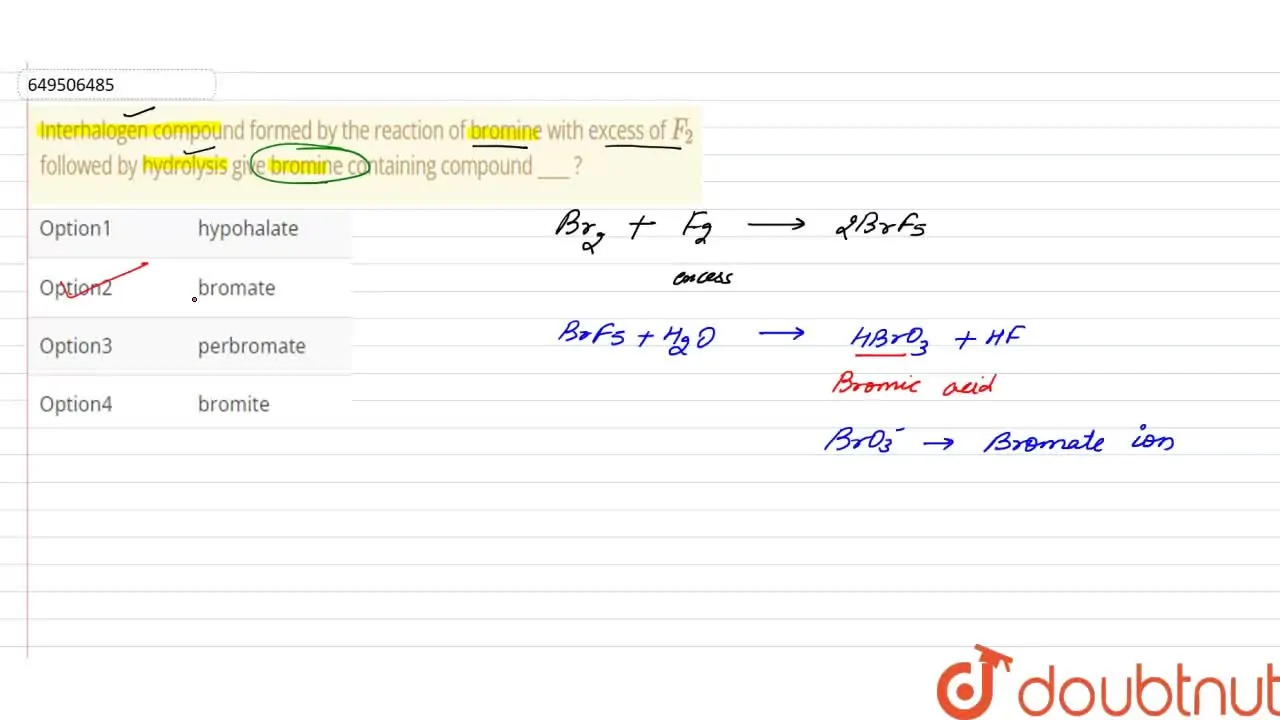 649506485
Interhalogen compound formed by the reaction of bromine with excess of F₂
followed by hydrolysis give bromine containing compound ___ ?
Option1 hypohalate
Option2 bromate
Option3 perbromate
Option4 bromite
Br₂ + F₂ → 2BrF₅
excess
BrF₅ + H₂O → HBrO₃ + HF
Bromic acid
BrO₃⁻ → Bromate ion
doubtnut